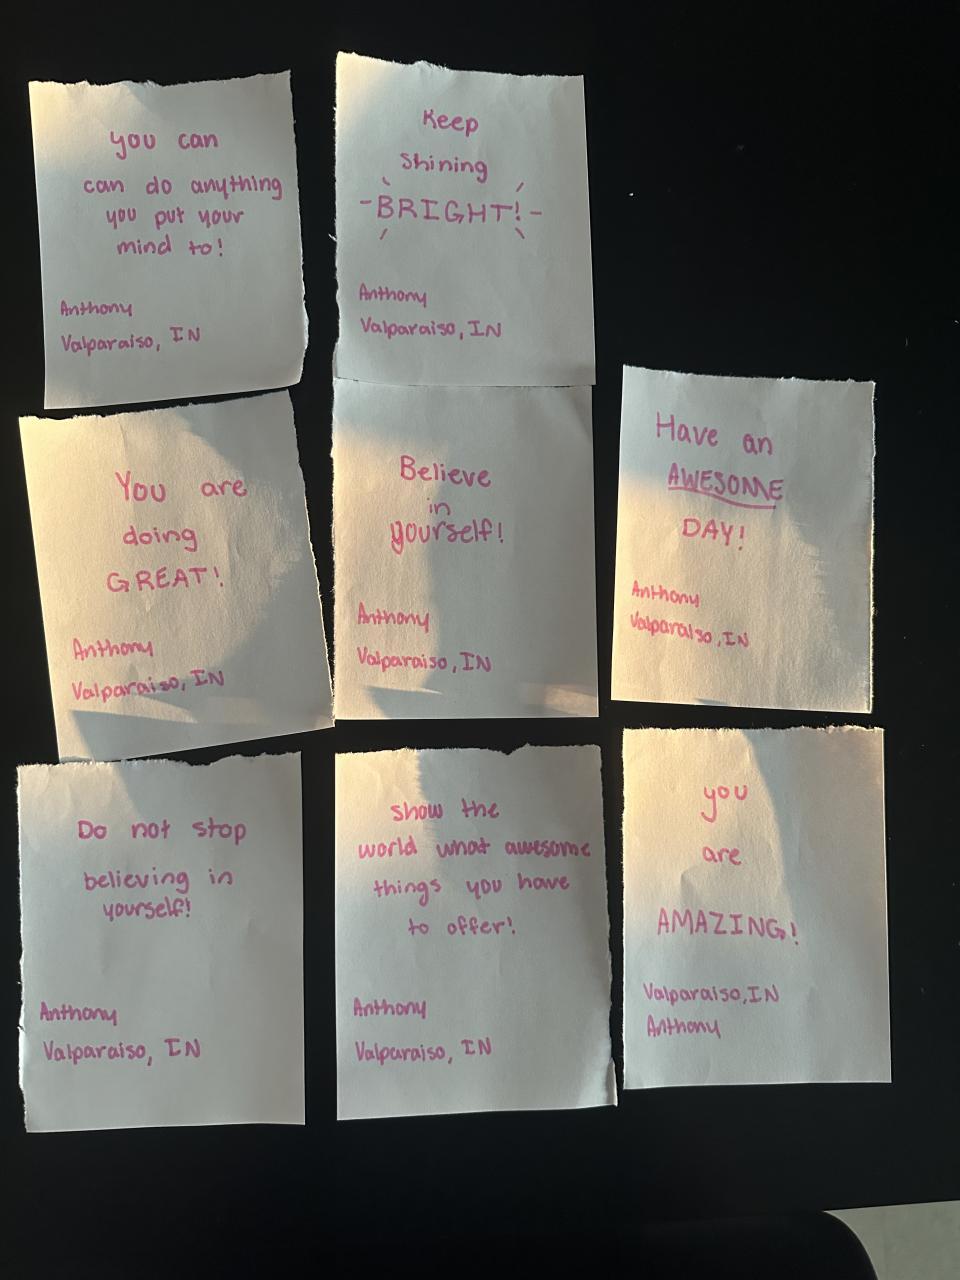 you can
can do anything
you put your
mind to!
Anthony
Valparaiso, IN
Keep
Shining
BRIGHT!
Anthony
Valparaiso, IN
You are
doing
GREAT!
Anthony
Valparaiso, IN
Believe
in
yourself!
Anthony
Valparaiso, IN
Have an
AWESOME
DAY!
Anthony
Valparaiso, IN
Do not stop
believing in
yourself!
Anthony
Valparaiso, IN
show the
world what awesome
things you have
to offer!
Anthony
Valparaiso, IN
you
are
AMAZING!
Valparaiso, IN
Anthony